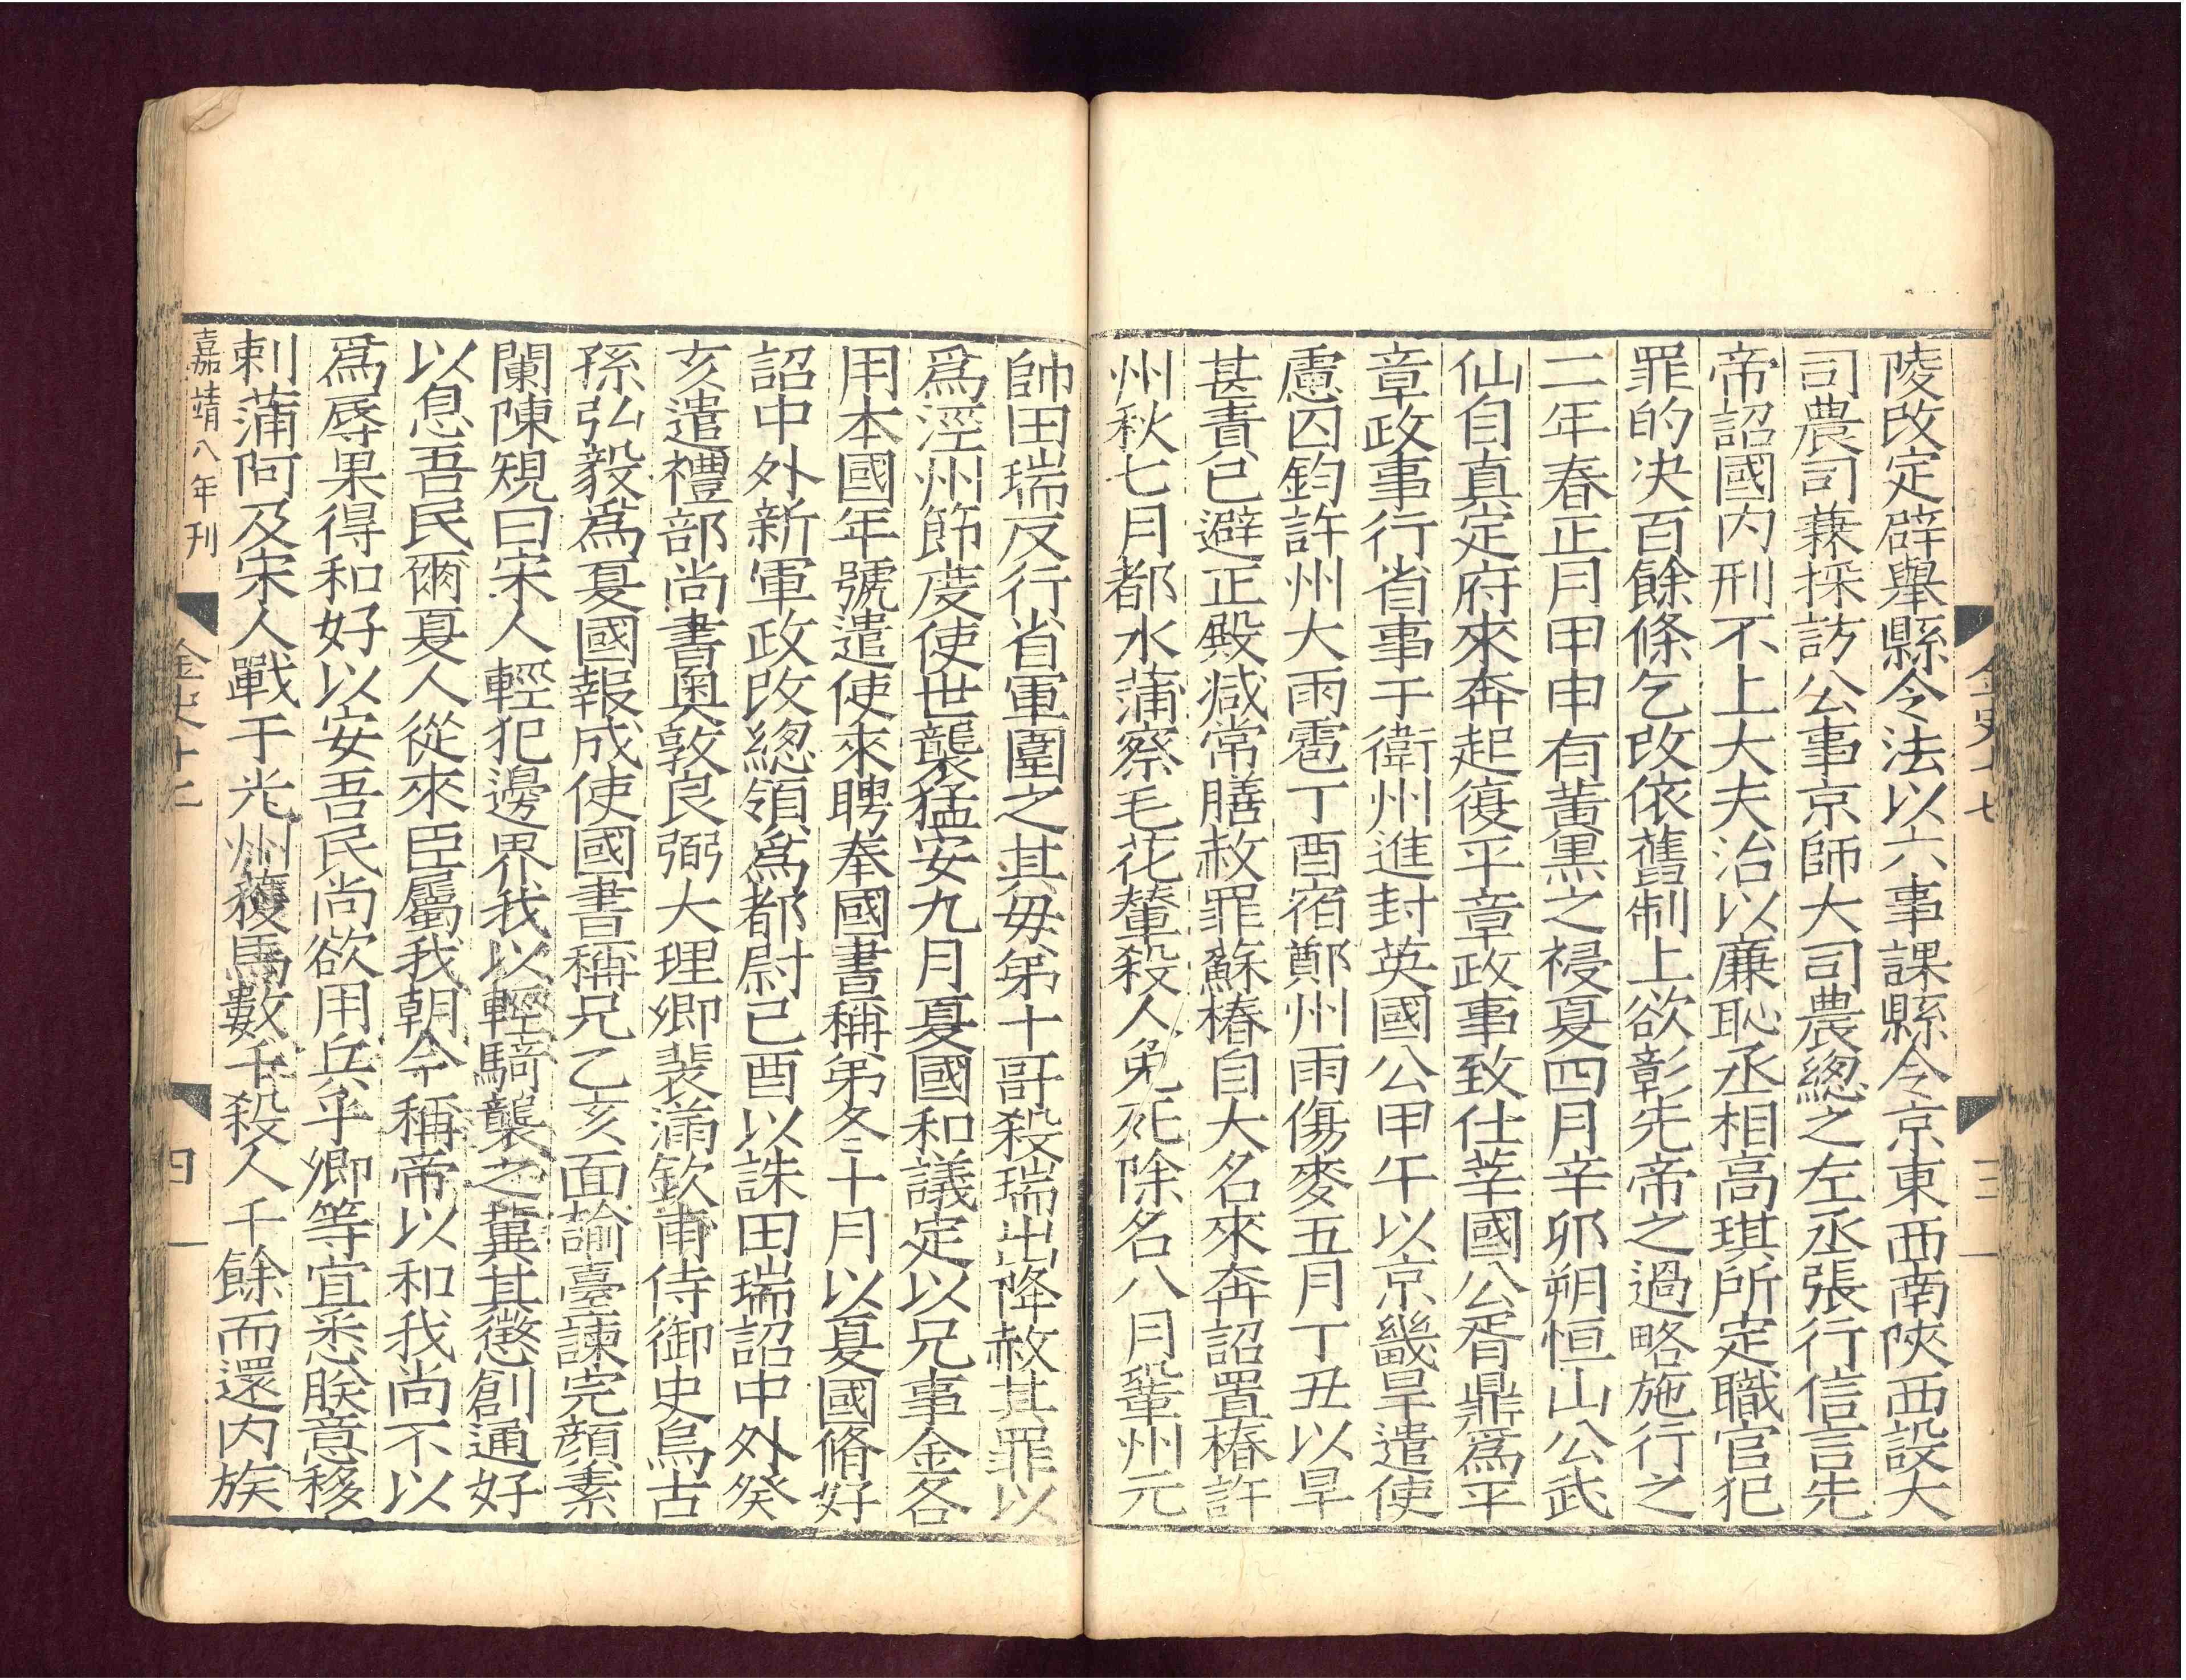 陵改定辟舉縣令法以六事課縣令京東西南陝西設大
司農司兼採訪公事京師大司農緫之左丞張行信言先
帝詔國内刑不上大夫治以廉恥丞相高琪所定職官犯
罪的决百餘條乞改依舊制上欲彰先帝之過略施行之
二年春正月甲申有黃黑之祲夏四月辛卯朔恒山公武
仙自真定府來奔起復平章政事致仕莘國公胥鼎爲平
章政事行省事于衛州進封英國公甲午以京畿旱遣使
慮囚鈞許州大雨雹丁酉宿鄭州雨傷麥五月丁丑以旱
甚責己避正殿減常膳赦罪蘇椿自大名來奔詔置椿許
州秋七月都水蒲察毛花輦殺人免死除名八月鞏州元
帥田瑞反行省軍圍之其母弟十哥殺瑞出降赦其罪以
爲涇州節度使世襲猛安九月夏國和議定以兄事金各
用本國年號遣使來聘奉國書稱弟冬十月以夏國脩好
詔中外新軍政改緫領爲都尉己酉以誅田瑞詔中外癸
亥遣禮部尚書奧敦良弼大理卿裴滿欽甫侍御史烏古
孫弘毅爲夏國報成使國書稱兄乙亥面諭臺諫完顔素
闌陳規曰宋人輕犯邊界我以輕騎襲之冀其懲創通好
以息吾民爾夏人從來臣屬我朝今稱帝以和我尚不以
爲辱果得和好以安吾民尚欲用兵乎卿等宜悉朕意移
剌蒲阿及宋人戰于光州獲馬數千殺人千餘而還内族
嘉靖八年刊
金史十七
四